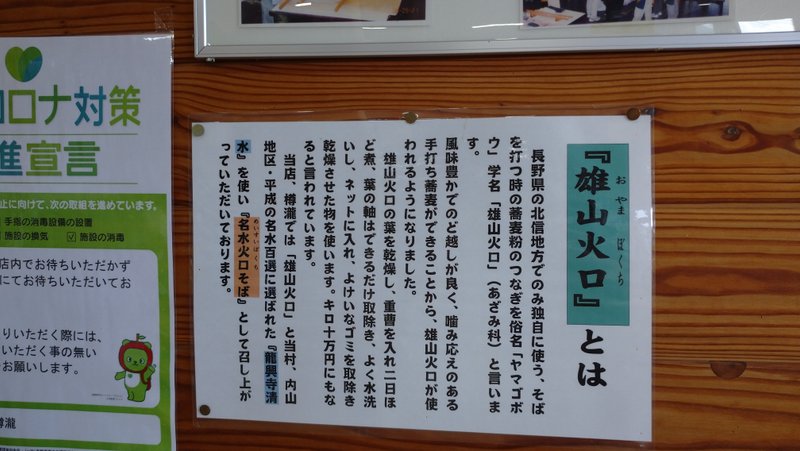 『雄山火口』とは
おやまぼくち
長野県の北信地方でのみ独自に使う、そば
を打つ時の蕎麦粉のつなぎを俗名「ヤマゴボ
ウ」学名「雄山火口」（あざみ科）と言いま
す。
風味豊かでのど越しが良く、噛み応えのある
手打ち蕎麦ができることから、雄山火口が使
われるようになりました。
雄山火口の葉を乾燥し、重曹を入れ二日ほ
ど煮、葉の軸はできるだけ取除き、よく水洗
いし、ネットに入れ、よけいなゴミを取除き
乾燥させた物を使います。キロ十万円にもな
ると言われています。
当店、樽瀧では「雄山火口」と当村、内山
地区・平成の名水百選に選ばれた『龍興寺清
水』を使い『名水火口そば』として召し上が
めいすいぼくち
っていただいております。
コロナ対策
進宣言
止に向けて、次の取組を進めています。
手指の消毒設備の設置
施設の換気 ☑ 施設の消毒
店内でお待ちいただかず
にてお待ちいただいてお
りいただく際には、
いただく事の無い
お願いします。
樽瀧